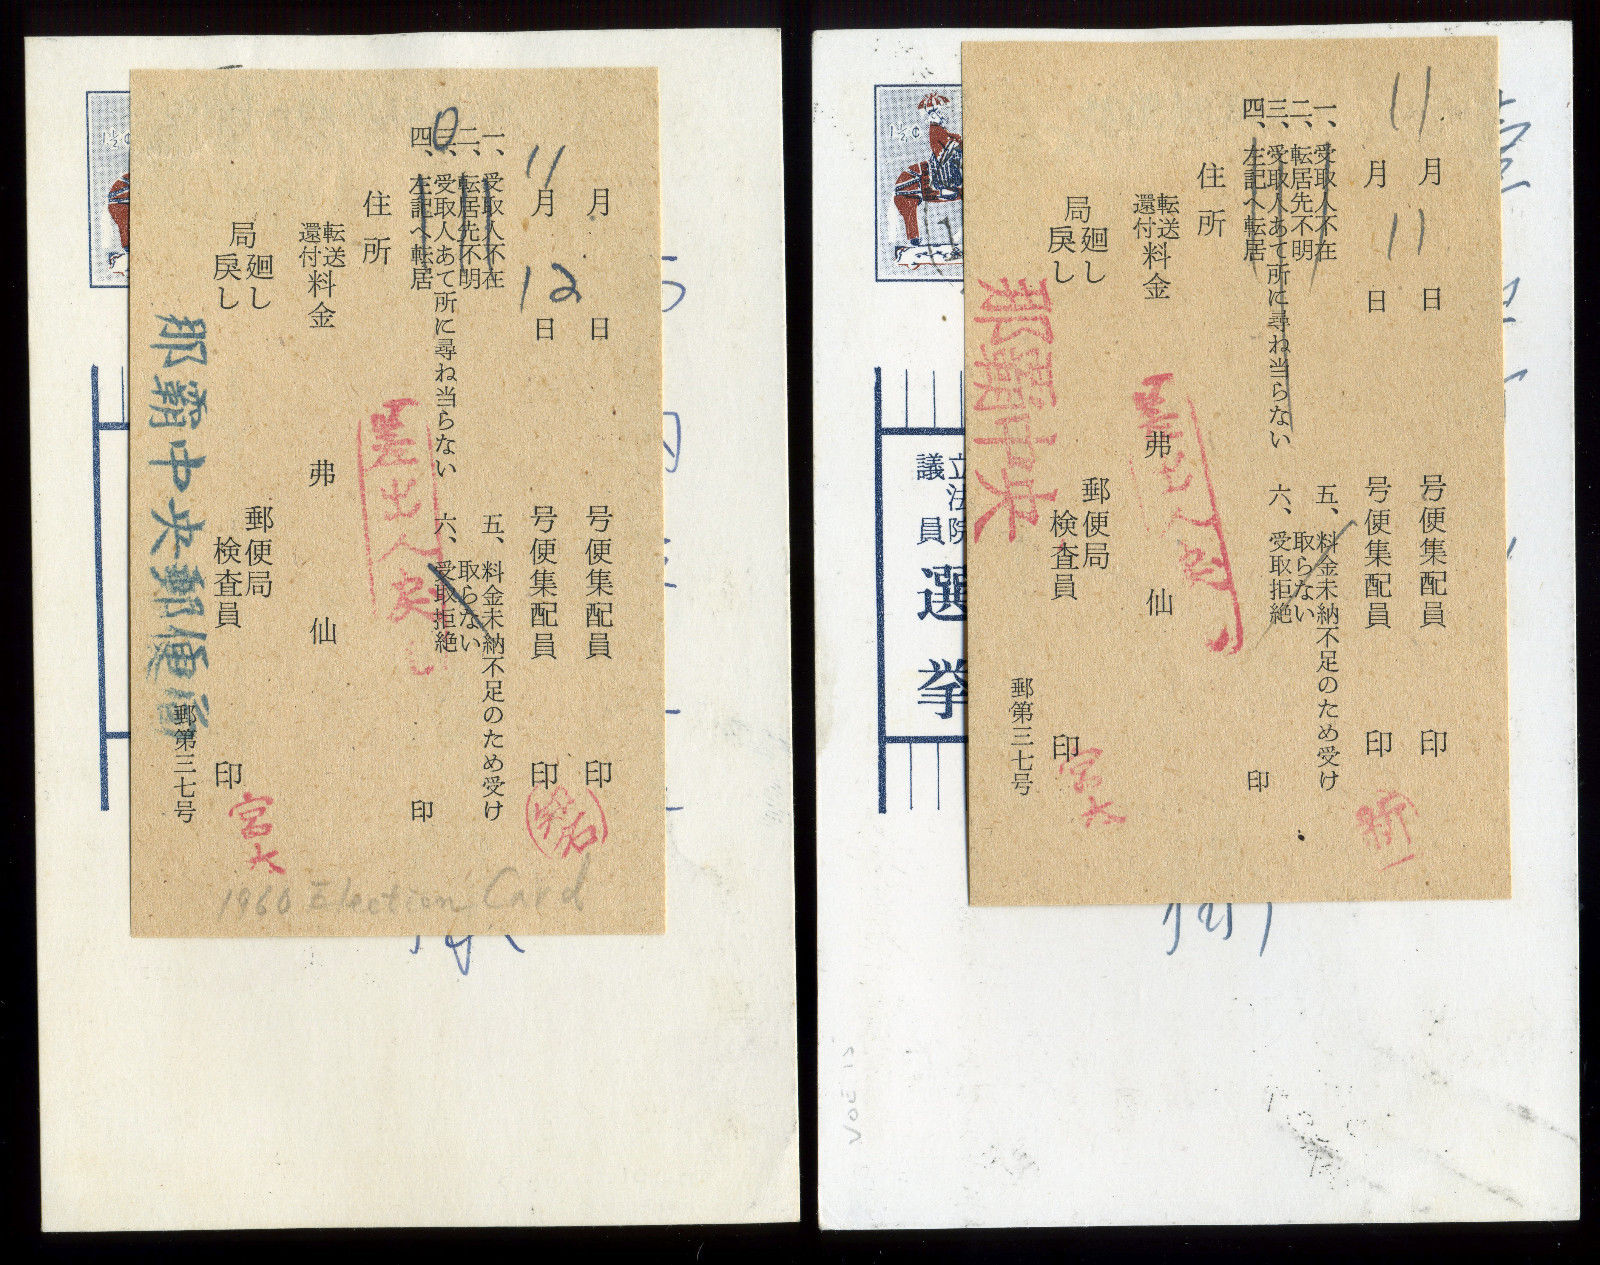 月 日 号便集配員 印
11月12日 号便集配員 印
一、受取人不在
二、転居先不明
三、受取人あて所に尋ね当らない
四、左記へ転居
五、料金未納不足のため受け
取らない
六、受取拒絶
住所 印
転送
還付
料金 弗 仙
廻し
局戻し
郵便局
検査員 印
郵第三七号
差出人戻し
那覇中央郵便局
宮大
1960 Election Card
1½¢
11月11日 号便集配員 印
月 日 号便集配員 印
一、受取人不在
二、転居先不明
三、受取人あて所に尋ね当らない
四、左記へ転居
五、料金未納不足のため受け
取らない
六、受取拒絶
住所 印
転送
還付
料金 弗 仙
廻し
局戻し
郵便局
検査員 印
郵第三七号
差出人戻し
那覇中央
宮大
1½¢
立法院
議員
選挙